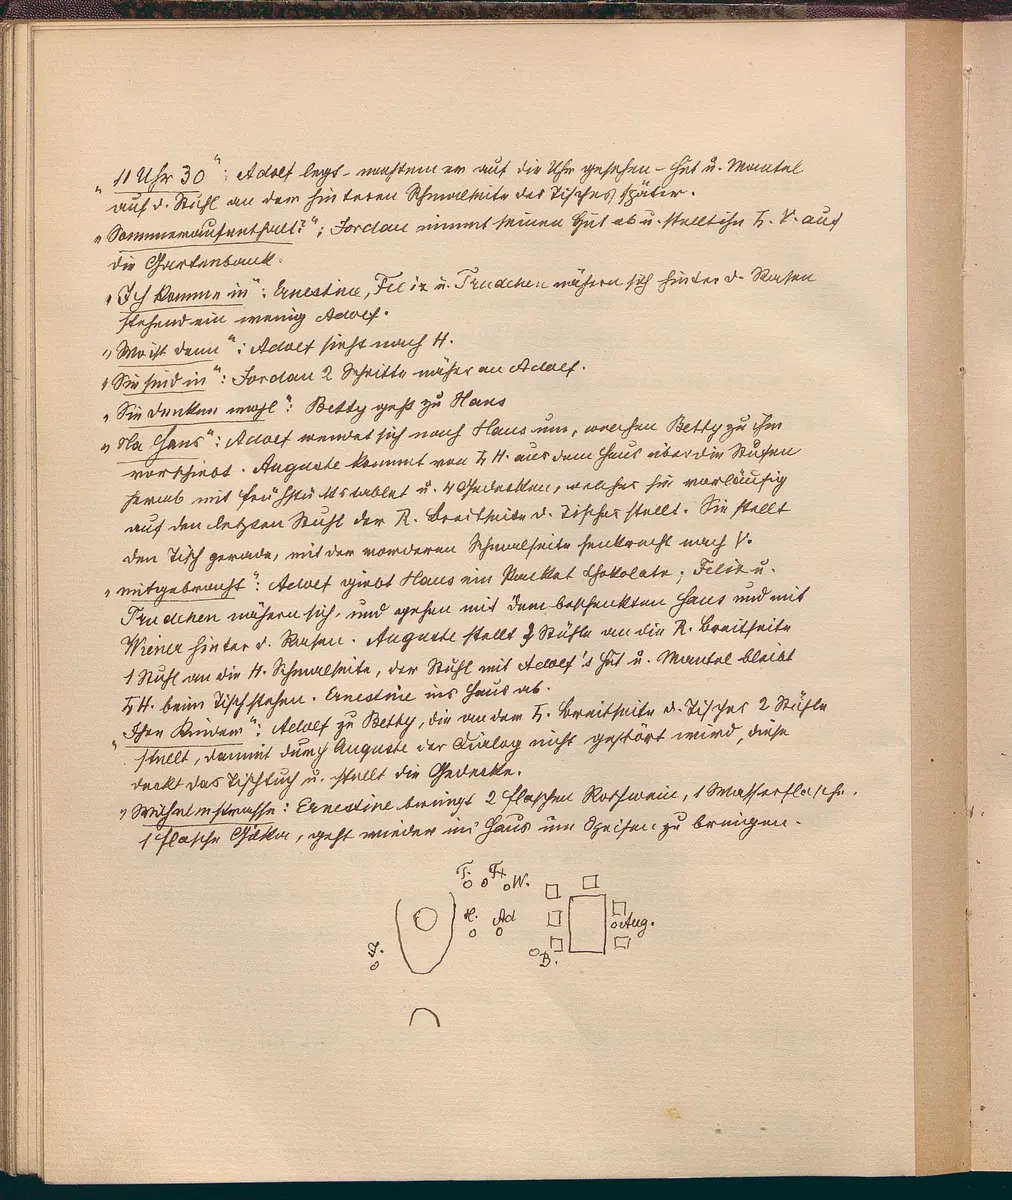 „11 Uhr 30“: Adolf legt - nachdem er auf die Uhr gesehen - Hut u. Mantel
auf d. Stuhl an der hinteren Schmalseite des Tisches später.
„Sommeraufenthalt?“: Jordan nimmt seinen Hut ab u. stellt ihn L. V. auf
die Gartenbank.
„Ich komme in“: Ernestine, Felix u. Trudchen nähern sich hinter d. Rasen
stehend ein wenig Adolf.
„Wo ist denn“: Adolf sieht nach H.
„Sie sind in“: Jordan 2 Schritte näher an Adolf.
„Sie denken wohl“: Betty geht zu Hans
„Na Hans“: Adolf wendet sich nach Hans um, welchen Betty zu ihm
vorschiebt. Auguste kommt von L H. aus dem Haus über die Stufen
herab mit Frühstückstablet u. 4 Gedecken, welches sie vorläufig
auf den letzten Stuhl der R. Breitseite d. Tisches stellt. Sie stellt
den Tisch gerade, mit der vorderen Schmalseite senkrecht nach V.
„mitgebracht“: Adolf giebt Hans ein Packet Chokolate; Felix u.
Trudchen nähern sich, und gehen mit dem beschenkten Hans und mit
Wiener hinter d. Rasen. Auguste stellt 3 Stühle an die R. Breitseite
1 Stuhl an die H. Schmalseite, der Stuhl mit Adolf's Hut u. Mantel bleibt
L H. beim Tisch stehen. Ernestine ins Haus ab.
„Ihre Kinder“: Adolf zu Betty, die an der L. Breitseite d. Tisches 2 Stühle
stellt, dammit durch Auguste der Dialog nicht gestört wird, diese
deckt das Tischtuch u. stellt die Gedecke.
„Wilhelmstrasse: Ernestine bringt 2 Flaschen Rothwein, 1 Wasserflasche.
1 Flasche Gilka, geht wieder ins Haus um Speisen zu bringen.
T. Fx W.
H. Ad Aug.
J. B.